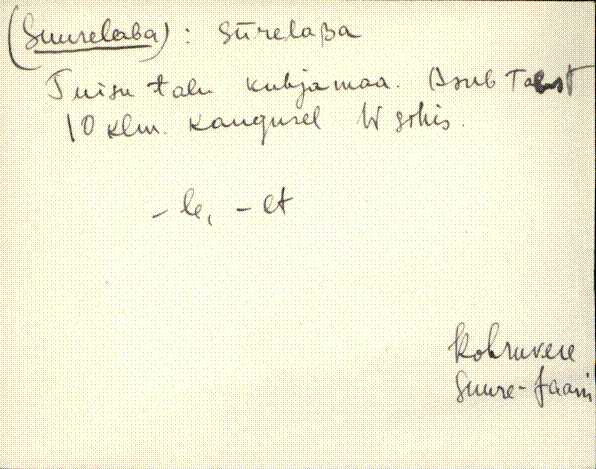 (Suurelaba): sūrelaʙa
Tuisu talu kubjamaa. Asub Talust
10 klm. kaugusel W sohis.
-le, -lt
Kobruvere
Suure-Jaani